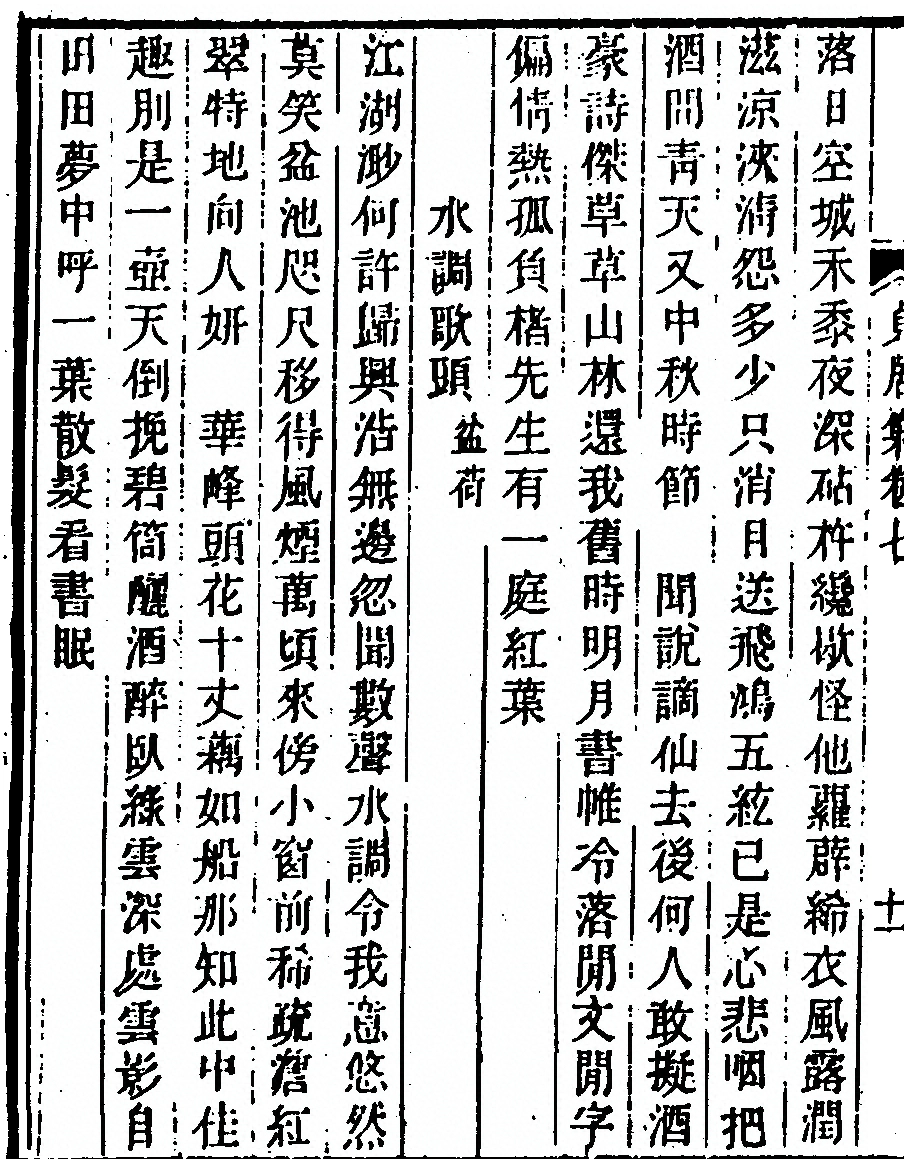 貞居集卷七
十一
落日空城禾黍夜深砧杵纔歇怪他蘿薜絺衣風露潤
滋涼浹清怨多少只消目送飛鴻五絃已是心悲咽把
酒問青天又中秋時節　聞說謫仙去後何人敢擬酒
豪詩傑草草山林還我舊時明月書帷冷落閒文閒字
偏情熱孤負楮先生有一庭紅葉
水調歌頭　盆荷
江湖渺何許歸興浩無邊忽聞數聲水調令我意悠然
莫笑盆池咫尺移得風煙萬頃來傍小窗前稀疏澹紅
翠特地向人妍　華峰頭花十丈藕如船那知此中佳
趣別是一壺天倒挽碧筩釃酒醉臥綠雲深處雲影自
田田夢中呼一葉散髮看書眠